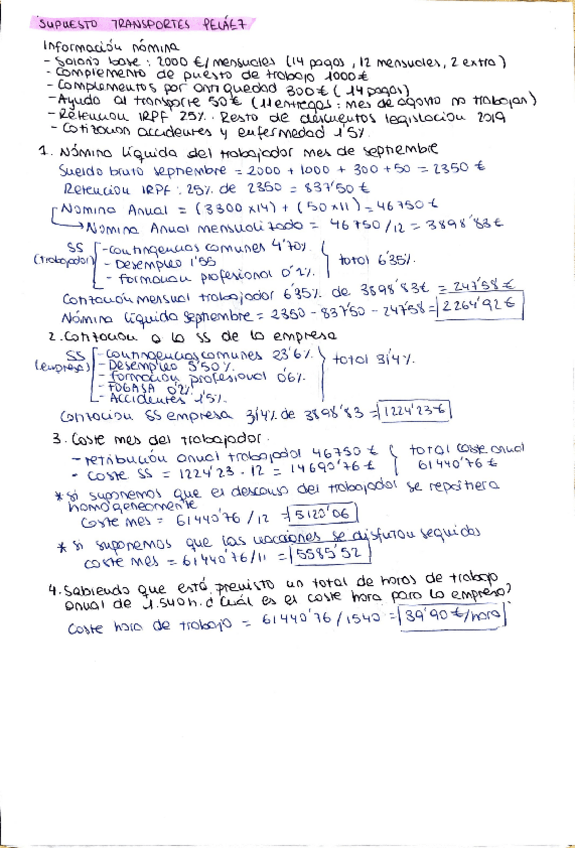 SUPUESTO TRANSPORTES PELÁEZ
Información nómina
- Salario base: 2000 €/mensuales (14 pagas, 12 mensuales, 2 extra)
- Complemento de puesto de trabajo 1000€
- Complementos por antigüedad 300€ (14 pagas)
- Ayuda al transporte 50€ (11 entregas: mes de agosto no trabajan)
- Retención IRPF 25%. Resto de descuentos legislación 2019
- Cotización accidentes y enfermedad 1'5%
1. Nómina líquida del trabajador mes de septiembre
Sueldo bruto septiembre = 2000 + 1000 + 300 + 50 = 2350 €
Retención IRPF: 25% de 2350 = 837'50 €
Nómina Anual = (3300 x 14) + (50 x 11) = 46750 €
→ Nómina Anual mensualizada = 46750/12 = 3898'83€
SS (trabajador)
- Contingencias comunes 4'70%
- Desempleo 1'55
- Formación profesional 0'1%
total 6'35%
Cotización mensual trabajador 6'35% de 3898'83€ = 247'58 €
Nómina líquida septiembre = 2350 - 837'50 - 247'58 = 2264'92 €
2. Cotización a la SS de la empresa
SS (empresa)
- Contingencias comunes 23'6%
- Desempleo 5'50%
- Formación profesional 0'6%
- FOGASA 0'2%
- Accidentes 1'5%
total 31'4%
Cotización SS empresa 31'4% de 3898'83 = 1224'23 €
3. Coste mes del trabajador.
- retribución anual trabajador 46750 €
- Coste SS = 1224'23 · 12 = 14690'76 €
total coste anual
61440'76 €
* si suponemos que el descanso del trabajador se repartiera
homogéneamente
Coste mes = 61440'76 / 12 = 5120'06
* si suponemos que las vacaciones se disfrutan seguidas
coste mes = 61440'76/11 = 5585'52
4. Sabiendo que está previsto un total de horas de trabajo
anual de 1.540h. ¿Cuál es el coste hora para la empresa?
Coste hora de trabajo = 61440'76 / 1540 = 39'90 €/hora